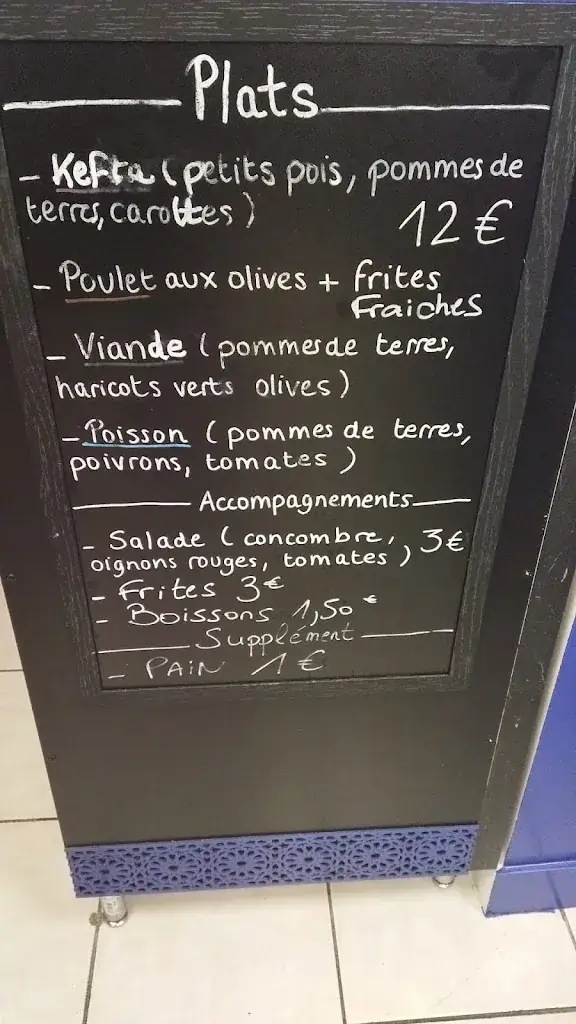 Plats
- Kefta (petits pois, pommes de
terres, carottes)
12 €
- Poulet aux olives + frites
Fraiches
- Viande (pommes de terres,
haricots verts olives)
- Poisson (pommes de terres,
poivrons, tomates)
Accompagnements
- Salade (concombre, 3€
oignons rouges, tomates)
- Frites 3€
- Boissons 1,50 €
Supplément
- PAIN 1 €